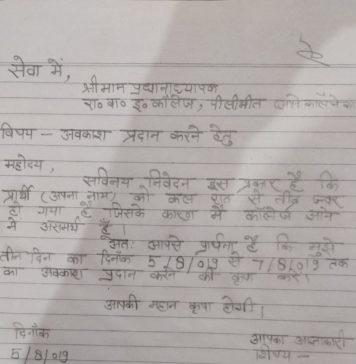 सेवा में,
श्रीमान प्रधानाध्यापक
रा० बा० इ० कॉलेज, पीलीभीत
विषय — अवकाश प्रदान करने हेतु
महोदय,
सविनय निवेदन इस प्रकार है कि
प्रार्थी (अपना नाम) को कल रात से तीव्र ज्वर
हो गया है जिसके कारण मैं कॉलेज आने
में असमर्थ हूँ।
अतः आपसे प्रार्थना है कि मुझे
तीन दिन का दिनाँक 5/8/019 से 7/8/019 तक
का अवकाश प्रदान करने की कृपा करें।
आपकी महान कृपा होगी।
दिनाँक
आपका आज्ञाकारी
5/8/019
शिष्य —